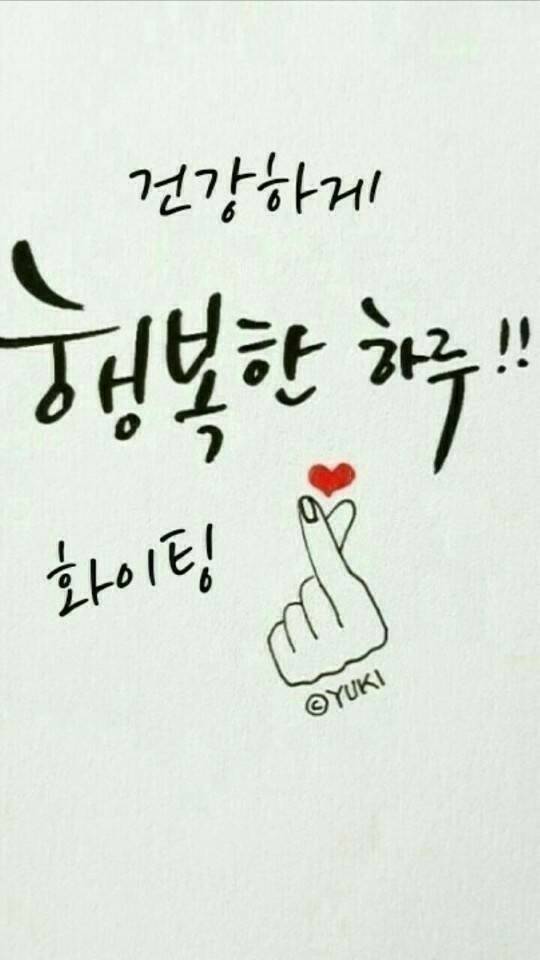 건강하게
행복한 하루!!
화이팅
©YUKI